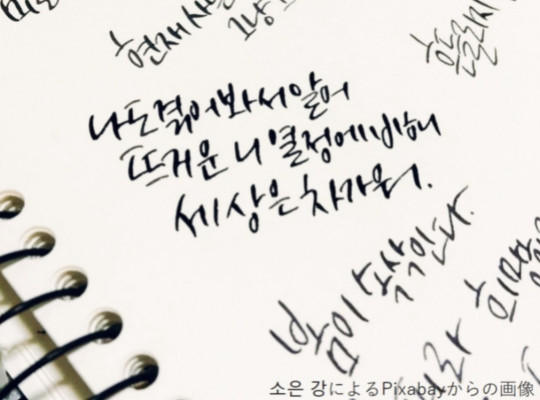 현재
그냥
흔들리지
나도 겪어봐서 알어
뜨거운 니 열정에 비해
세상은 차가워.
봄이 속삭인다.
희망
소은 강によるPixabayからの画像